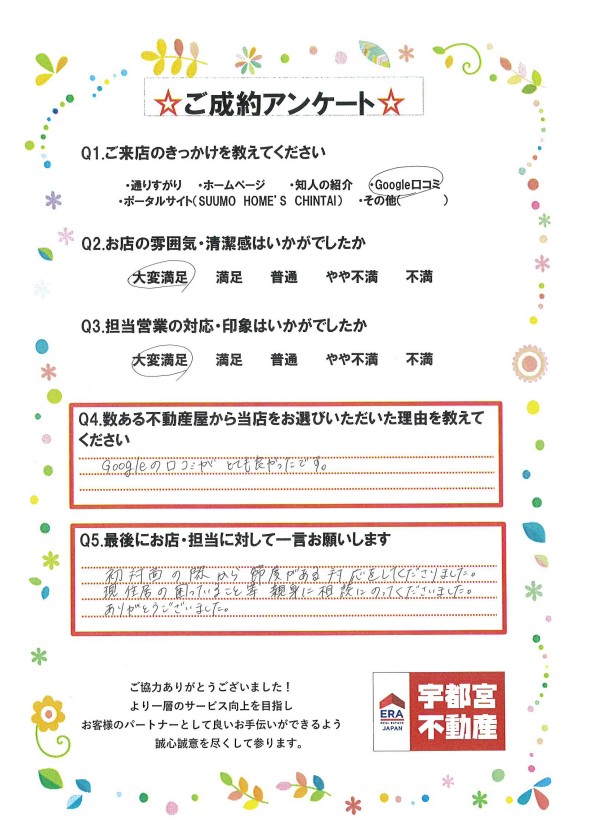 ☆ご成約アンケート☆
Q1.ご来店のきっかけを教えてください
・通りすがり ・ホームページ ・知人の紹介 ・Google口コミ
・ポータルサイト(SUUMO HOME'S CHINTAI) ・その他( )
Q2.お店の雰囲気・清潔感はいかがでしたか
大変満足 満足 普通 やや不満 不満
Q3.担当営業の対応・印象はいかがでしたか
大変満足 満足 普通 やや不満 不満
Q4.数ある不動産屋から当店をお選びいただいた理由を教えて
ください
Googleの口コミが とても良かったです。
Q5.最後にお店・担当に対して一言お願いします
初対面の際から節度がある対応をしてくださりました。
現住居の困っていること等 親身に相談にのってくださいました。
ありがとうございました。
ご協力ありがとうございました！
より一層のサービス向上を目指し
お客様のパートナーとして良いお手伝いができるよう
誠心誠意を尽くして参ります。
ERA
REAL ESTATE
JAPAN
宇都宮
不動産